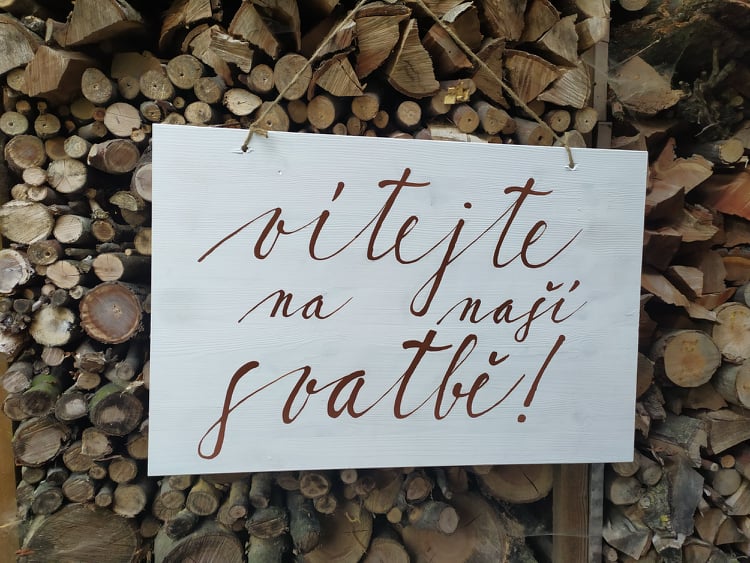 vítejte
na naší
svatbě!